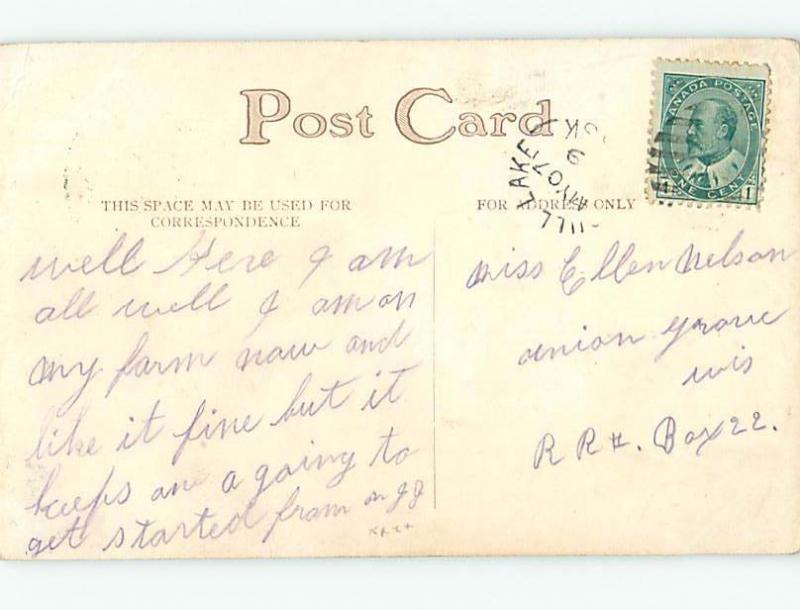 Post Card
CANADA POSTAGE
ONE CENT
1 1
LAKE
9
MY 07
THIS SPACE MAY BE USED FOR
CORRESPONDENCE
FOR ADDRESS ONLY
well Here I am
all well I am on
my farm now and
like it fine but it
keeps one a going to
get started from
xxxx
Miss Ellen Nelson
union grove
wis
RR#. Box 22.